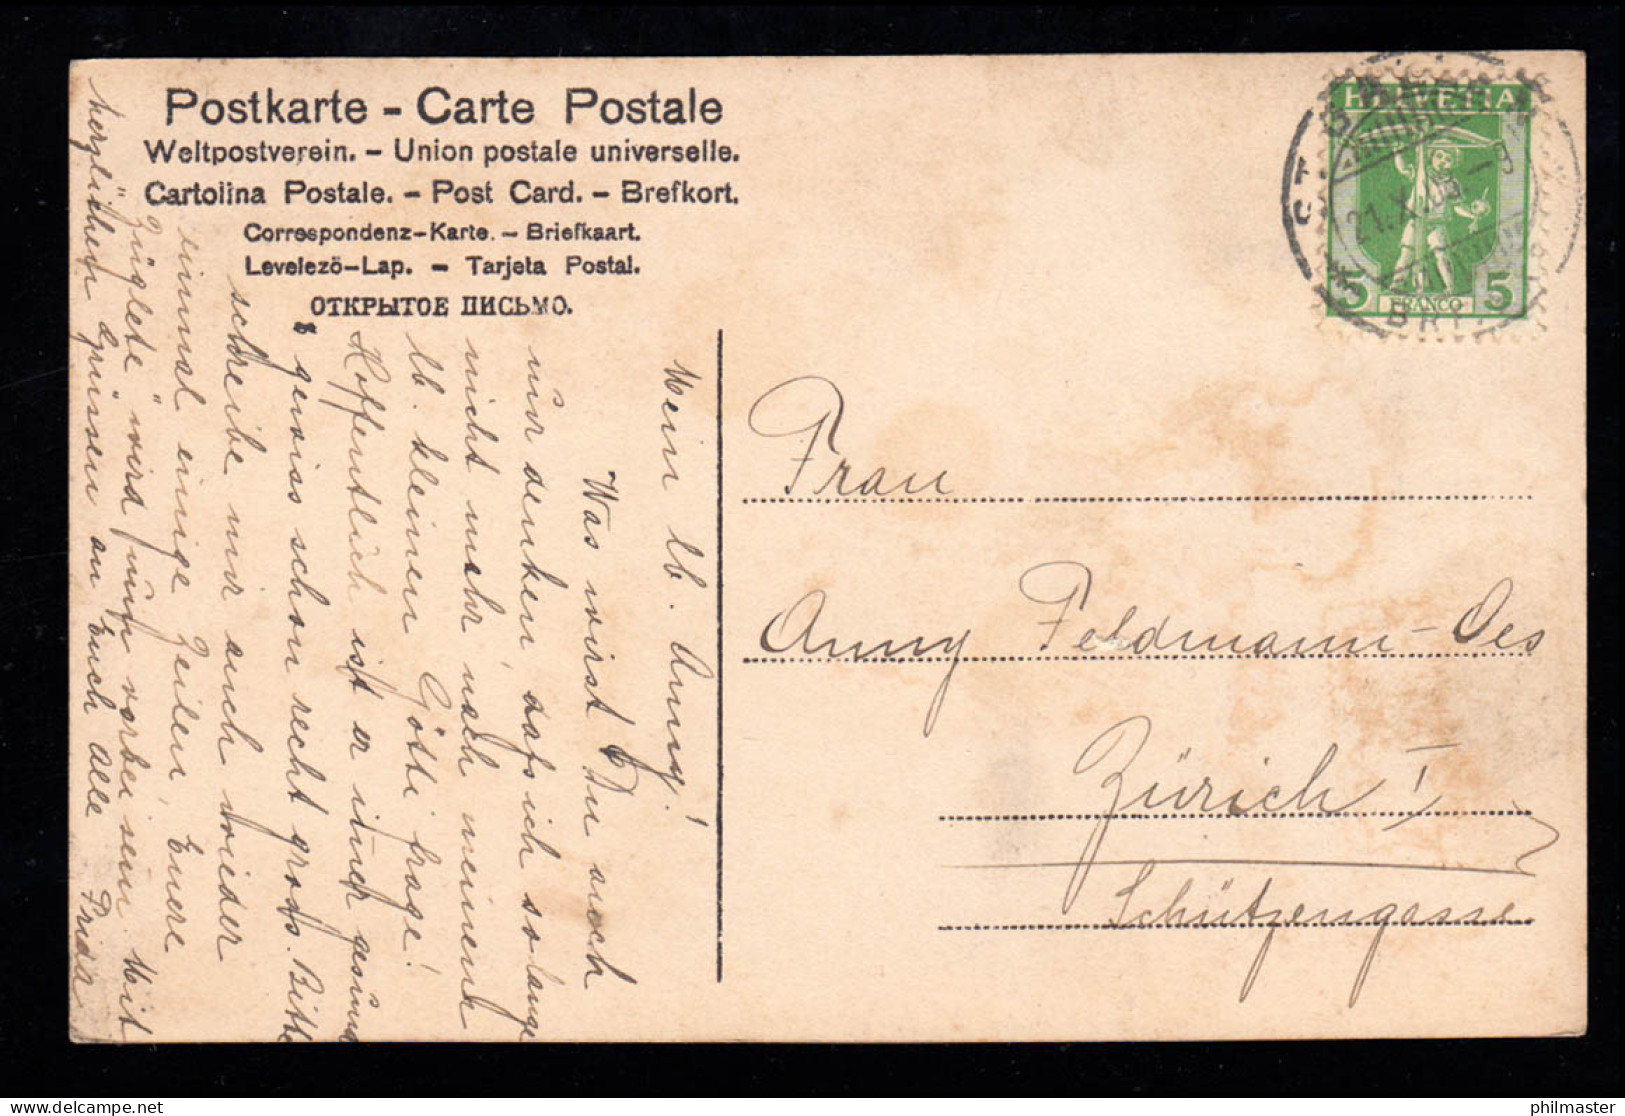 Postkarte - Carte Postale
Weltpostverein. - Union postale universelle.
Cartolina Postale. - Post Card. - Brefkort.
Correspondenz-Karte. - Briefkaart.
Levelező-Lap. - Tarjeta Postal.
ОТКРЫТОЕ ПИСЬМО.
Mein lb. Anny!
Was wirst Du auch
nur denken dass ich solange
nicht mehr nach meinem
lb. kleinen Götti frage!
Hoffentlich ist er immer gesund
gewiss schon recht gross. Bitte
schreibe mir auch wieder
einmal einige Zeilen, Eure
"Züglete" wird nun vorbei sein. Mit
herzlichen Grüssen an Euch Alle Frida
HELVETIA
5 FRANCO 5
ST.
21.X.09
Frau
Anny Feldmann-Oes
Zürich I
Schützengasse
philmaster